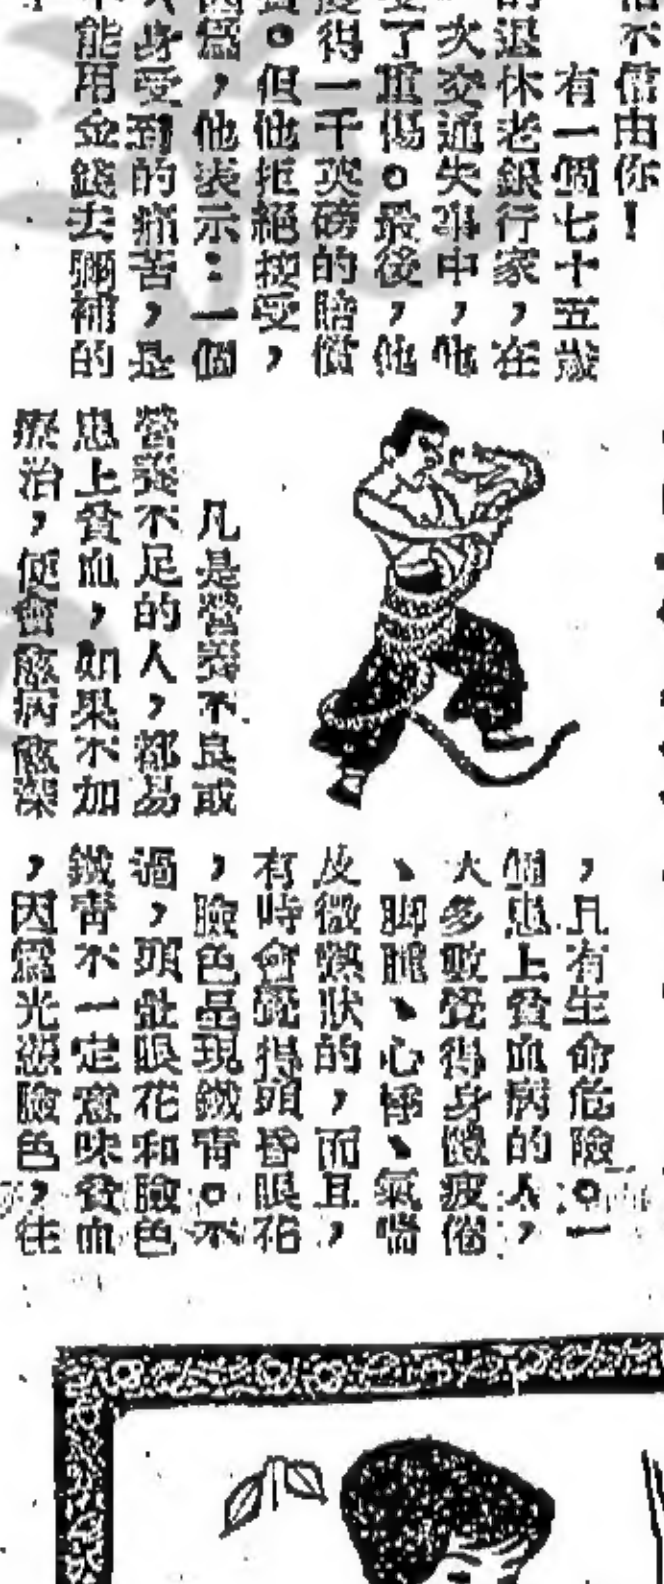 信不信由你！
有一個七十五歲
的退休老銀行家，在
一次交通失事中，他
受了重傷。最後，他
獲得一千英磅的賠償
。但他拒絕接受，
因爲，他表示：一個
人身受到的痛苦，是
不能用金錢去彌補的
凡是營養不良或
營養不足的人，都易
患上貧血，如果不加
療治，便會愈病愈深
，且有生命危險。一
個患上貧血病的人，
大多數覺得身體疲倦
、脚腫、心悸、氣喘
及微熱狀的，而且，
有時會覺得頭昏眼花
，臉色呈現鐵青。不
過，頭暈眼花和臉色
鐵青不一定意味貧血
，因爲光憑臉色，往